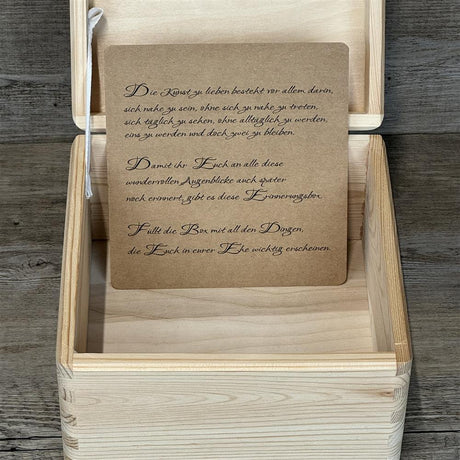 Die Kunst zu lieben besteht vor allem darin,
sich nahe zu sein, ohne sich zu nahe zu treten,
sich täglich zu sehen, ohne alltäglich zu werden,
eins zu werden und doch zwei zu bleiben.
Damit ihr Euch an alle diese
wundervollen Augenblicke auch später
noch erinnert, gibt es diese Erinnerungsbox.
Füllt die Box mit all den Dingen,
die Euch in eurer Ehe wichtig erscheinen.